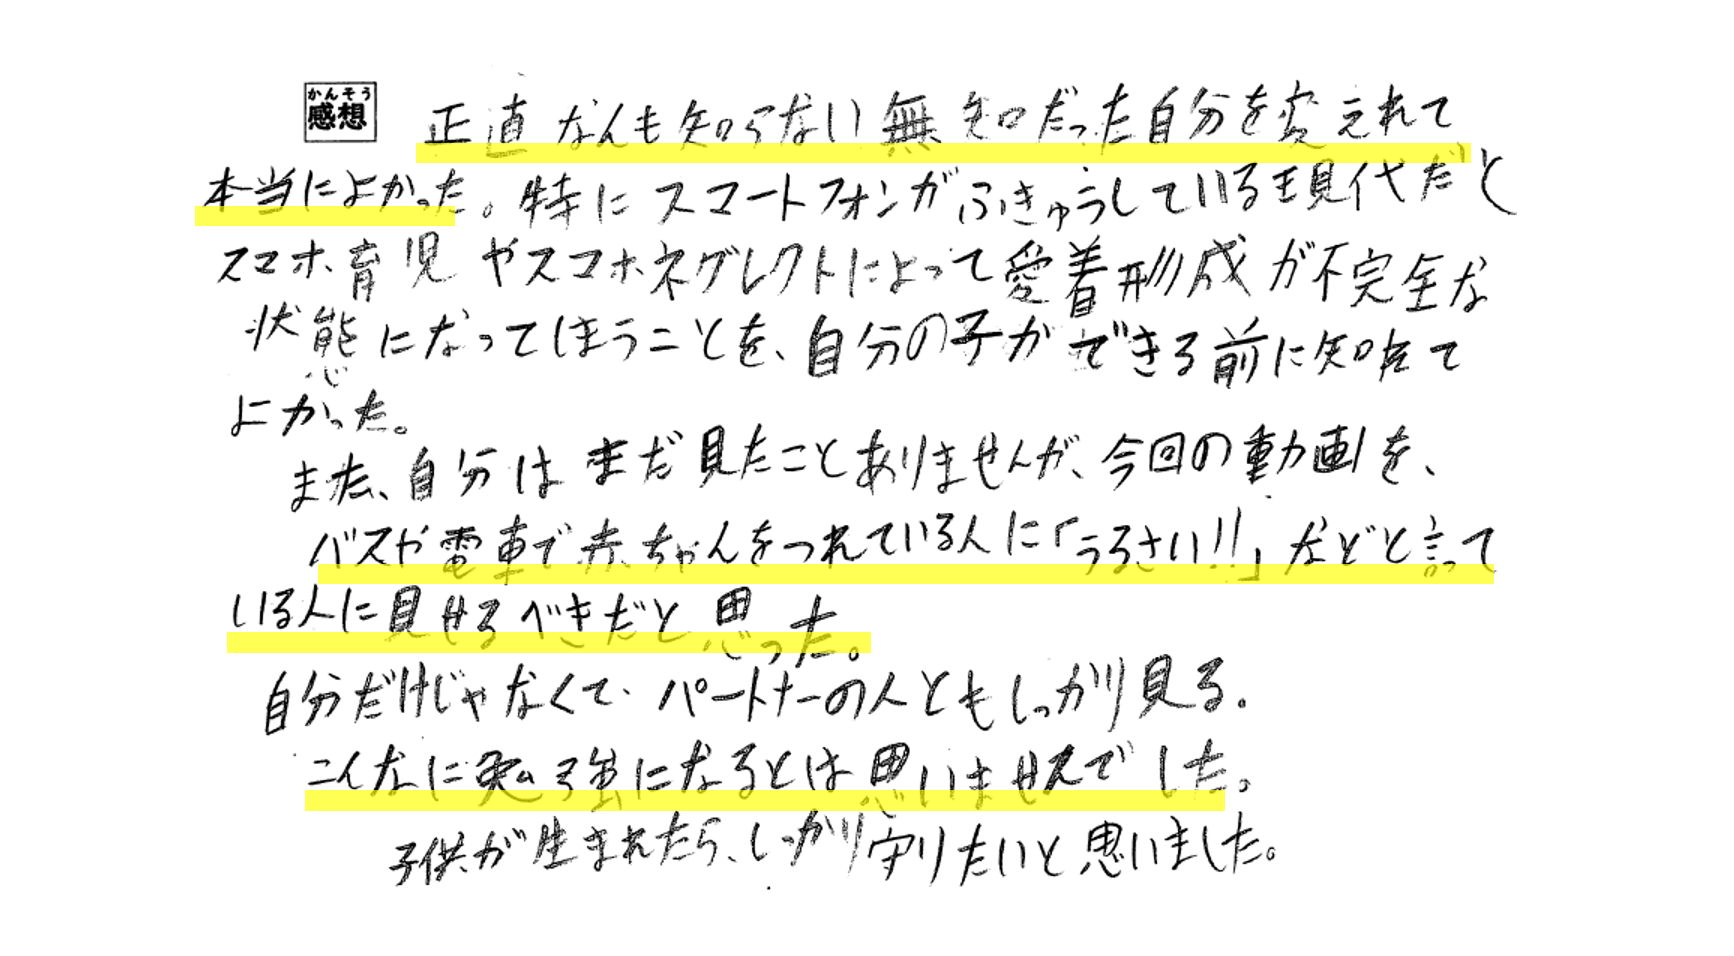 かんそう
感想 正直なんも知らない無知だった自分を変えれて
本当によかった。特にスマートフォンがふきゅうしている現代だと
スマホ育児やスマホネグレクトによって愛着形成が不完全な
状態になってしまうことを、自分の子ができる前に知れて
よかった。
また、自分はまだ見たことありませんが、今回の動画を、
バスや電車で赤ちゃんをつれている人に「うるさい!!」などと言って
いる人に見せるべきだと思った。
自分だけじゃなくて、パートナーの人ともしっかり見る。
こんなに勉強になるとは思いませんでした。
子供が生まれたら、しっかり守りたいと思いました。